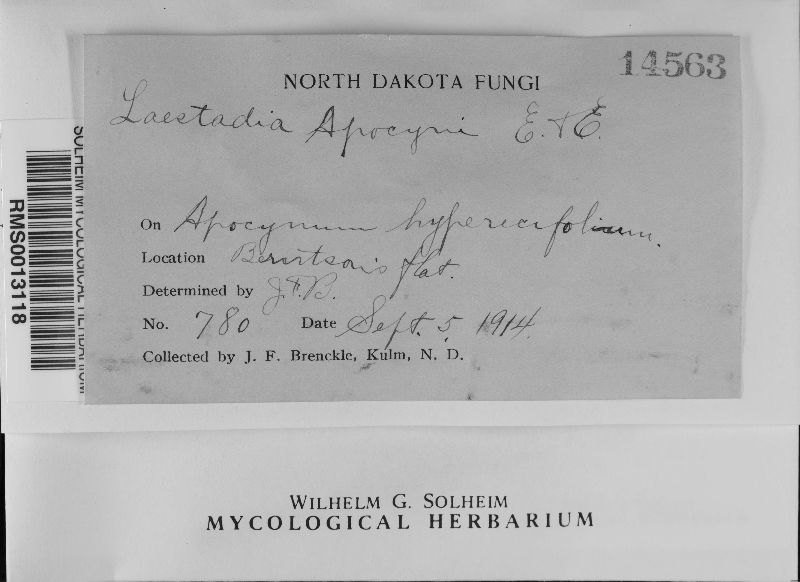 14563
NORTH DAKOTA FUNGI
Laestadia Apocyni E. & E.
On Apocynum hypericifolium.
Location Berntson's flat.
Determined by J.F.B.
No. 780 Date Sept. 5, 1914.
Collected by J. F. Brenckle, Kulm, N. D.
SOLHEIM MYCOLOGICAL HERBARIUM
RMS0013118
WILHELM G. SOLHEIM
MYCOLOGICAL HERBARIUM